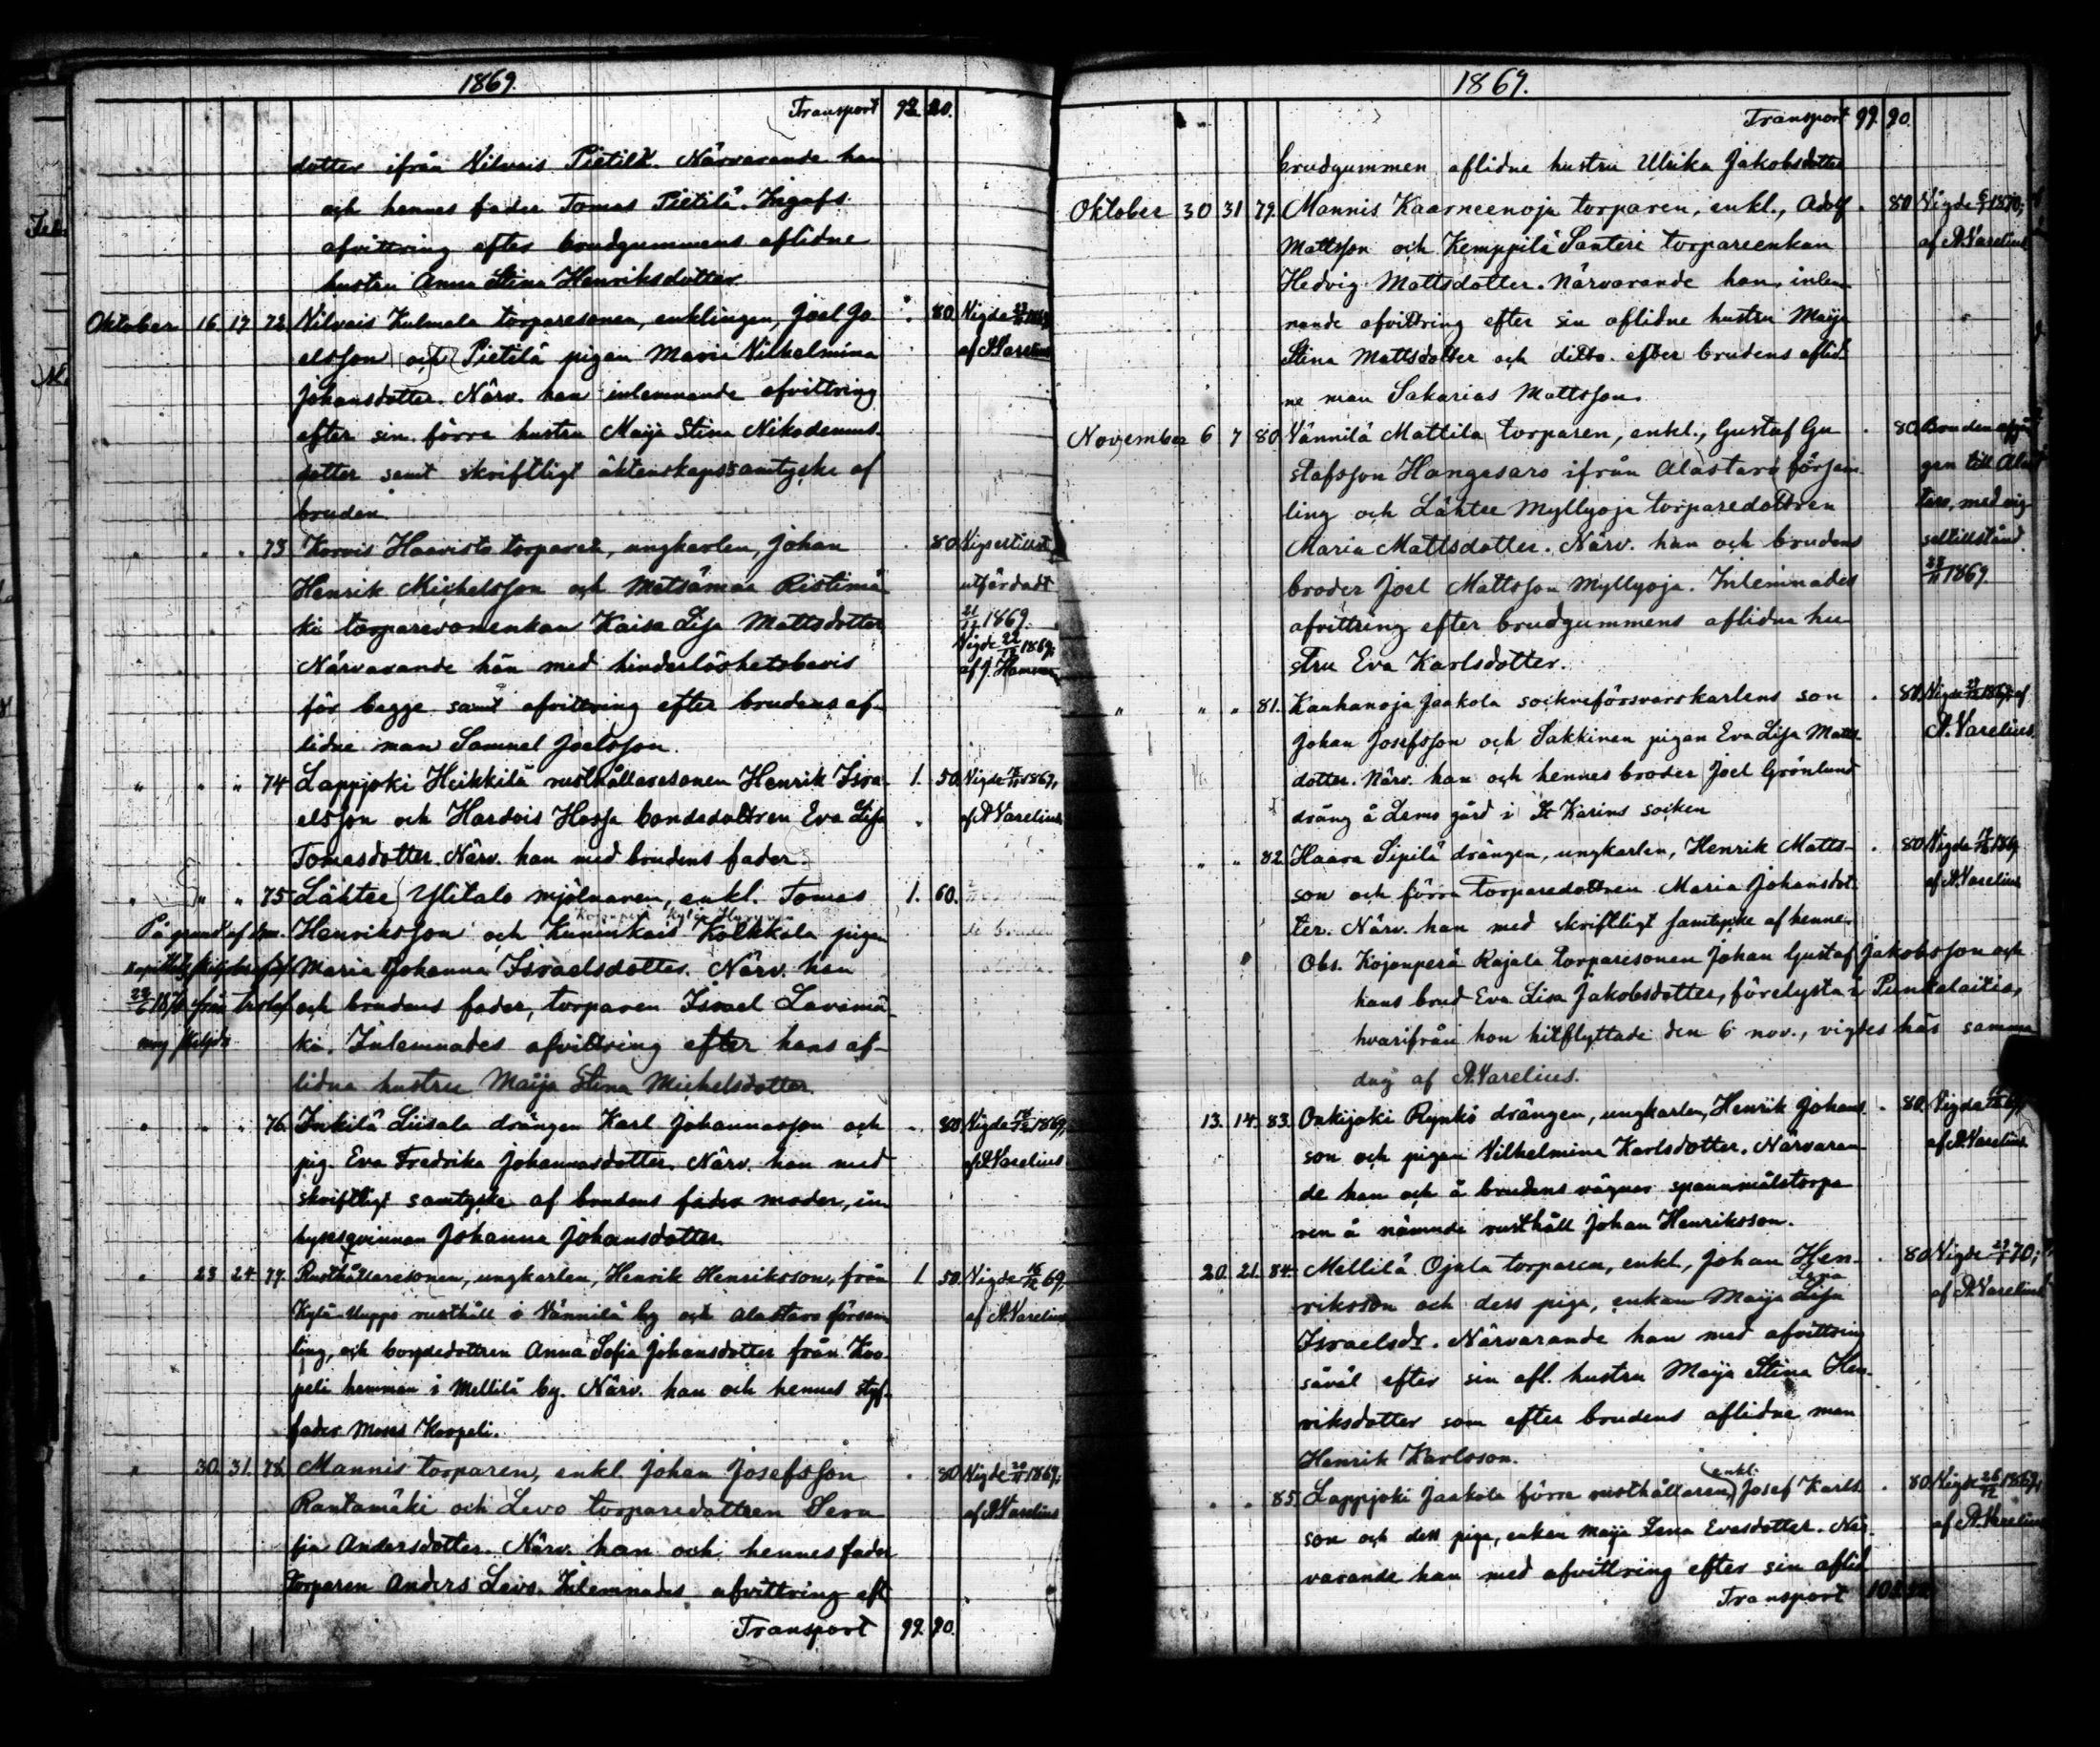 1869.
Transport 92. 20.
dotter ifrån Vilvais Pietilä. Närvarande han
och hennes fader Tomas Pietilä. Ingafs
afvittring efter brudgummens aflidne
hustru Anna Stina Henriksdotter
Oktober 16 17 72 Vilvais Kulmala torparesonen, enklingen, Joel Jo . 80. Vigde 1869
elsson och Pietilä pigan Maria Vilhelmina af A. Varelius
Johansdotter. Närv. han inlemnande afvittring
efter sin förra hustru Maija Stina Nikodemus
dotter samt skriftligt äktenskapssamtycke af
bruden.
" " " 73 Korvis Haavisto torparen, ungkarlen, Johan . 80 Vigseltillst
Henrik Michelsson och Metsämaa Ristimä utfärdadt
ki torparesonenkan Kaisa Lisa Mattsdotter 21/12 1869.
Närvarande han med hinderlöshetsbevis Vigde 22/12 1869, af J. Hamman
för begge samt afvittring efter brudens af-
lidne man Samuel Joelsson.
" " " 74 Lappjoki Heikkilä rusthållaresonen Henrik Isra 1. 50. Vigde 1869,
elsson och Hardvis Hossa bondedottren Eva Lisa af A Varelius
Tomasdotter. Närv. han med brudens fader.
" " " 75 Lähtee Ylitalo mjölnaren, enkl. Tomas 1. 60.
På grund af dom. Henriksson och Kuninkais Kolkkola pigan
Maria Johanna Israelsdotter. Närv. han
och brudens fader, torparen Israel Lavamä-
ki. Inlemnades afvittring efter hans af-
lidna hustru Maija Stina Michelsdotter.
" " " 76 Inkilä Liisala drängen Karl Johannasson och . 80. Vigde 1869,
pig. Eva Fredrika Johannasdotter. Närv. han med af A Varelius
skriftligt samtycke af brudens fader moder, in
hysesqvinnan Johanna Johansdotter.
" 23 24 77. Rusthållaresonen, ungkarlen, Henrik Henriksson, från 1 50. Vigde 69,
Kylä-Uuppo rusthåll i Vännilä by och Alastaro försam af A. Varelius
ling, och bondedottren Anna Sofia Johansdotter från Kor
peli hemman i Mellilä by. Närv. han och hennes styf-
fader Moses Korpeli.
" 30. 31. 78. Mannis torparen, enkl. Johan Josefsson . 80 Vigde 1869,
Rantamäki och Levo torparedottren Sera af A Varelius
fia Andersdotter. Närv. han och hennes fader
torparen Anders Levo. Inlemnades afvittring eft.
Transport 99. 90.
1869.
Transport 99. 90.
brudgummen aflidne hustru Ulrika Jakobsdotter
Oktober 30 31 79. Mannis Kaarneenoja torparen, enkl., Adolf . 80 Vigde 1870,
Mattsson och Kemppilä Santeri torpareenkan af A. Varelius
Hedvig Mattsdotter. Närvarande han, inlem
nande afvittring efter sin aflidne hustru Maija
Stina Mattsdotter och ditto. efter brudens aflid-
ne man Sakarias Mattsson.
November 6 7 80 Vännilä Mattila torparen, enkl., Gustaf Gu . 80. Bruden afgån
stafsson Hangasaro ifrån Alastaro försam gen till Alas
ling och Lähtee Myllyoja torparedottren taro, med vig-
Maria Mattsdotter. Närv. han och brudens seltillstånd
broder Joel Mattsson Myllyoja. Inlemnades 1869
afvittring efter brudgummens aflidna hu
stru Eva Karlsdotter.
" " " 81. Kauhanoja Jaakola sockneförsvarskarlens son . 80. Vigde 1869, af
Johan Josefsson och Sakkinen pigan Eva Lisa Matts A. Varelius.
dotter. Närv. han och hennes broder Joel Grönlund
dräng å Lemo gård i St Karins socken
" " 82 Haara Sipilä drängen, ungkarlen, Henrik Matts- . 80 Vigde 1869
son och förra torparedottren Maria Johansdot- af A. Varelius
ter. Närv. han med skriftligt samtycke af henne.
Obs. Kojonperä Rajala torparesonen Johan Gustaf Jakobsson och
hans brud Eva Lisa Jakobsdotter, förelysta i Punkalaitio,
hvarifrån hon hitflyttade den 6 nov., vigdes här samma
dag af A. Varelius.
13. 14. 83. Onkijoki Rynkö drängen, ungkarlen, Henrik Johans . 80. Vigde
son och pigan Vilhelmina Karlsdotter. Närvaran af A. Varelius
de han och å brudens vägnar spannmålstorpa
ren å nämnde rusthåll Johan Henriksson.
20. 21. 84. Mellilä Ojala torparen, enkl., Johan Hen- . 80 Vigde 70;
riksson och dess piga, enkan Maija Lisa Lena af A. Varelius
Israelsdr. Närvarande han med afvittring
såväl efter sin afl. hustru Maija Stina Hen-
riksdotter som efter brudens aflidne man
Henrik Karlsson.
" " 85. Lappjoki Jaakola förre rusthållaren, enkl. Josef Karls . 80 Vigde 26/12 1869,
son och dess piga, enkan Maija Lena Evasdotter. När- af A. Varelius
varande han med afvittring efter sin aflid
Transport